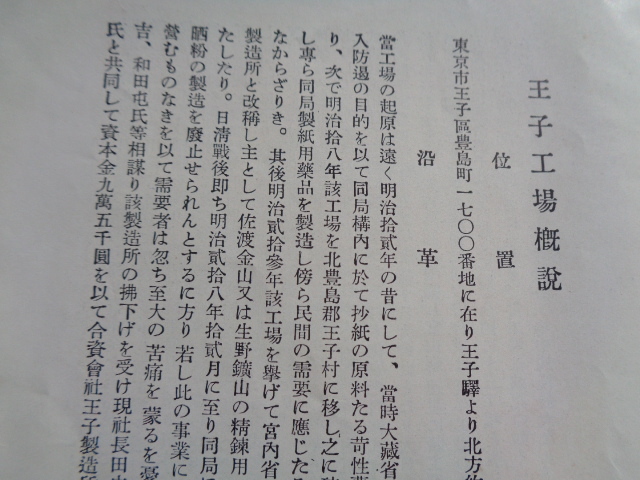 王子工場概説
位置
東京市王子區豊島町一七〇〇番地に在り王子驛より北方約
沿革
當工場の起原は遠く明治拾貳年の昔にして、當時大藏省
入防遏の目的を以て同局構內に於て抄紙の原料たる苛性
り、次で明治拾八年該工場を北豊島郡王子村に移し之に
し專ら同局製紙用藥品を製造し傍ら民間の需要に應じた
なからざりき。其後明治貳拾參年該工場を擧げて宮內省
製造所と改稱し主として佐渡金山又は生野鑛山の精鍊用
たしたり。日清戰後即ち明治貳拾八年拾貳月に至り同局に
晒粉の製造を廢止せられんとするに方り若し此の事業に
營むものなきを以て需要者は忽ち至大の苦痛を蒙るを憂
吉、和田屯氏等相謀り該製造所の拂下げを受け現社長田中
氏と共同して資本金九萬五千圓を以て合資會社王子製造所